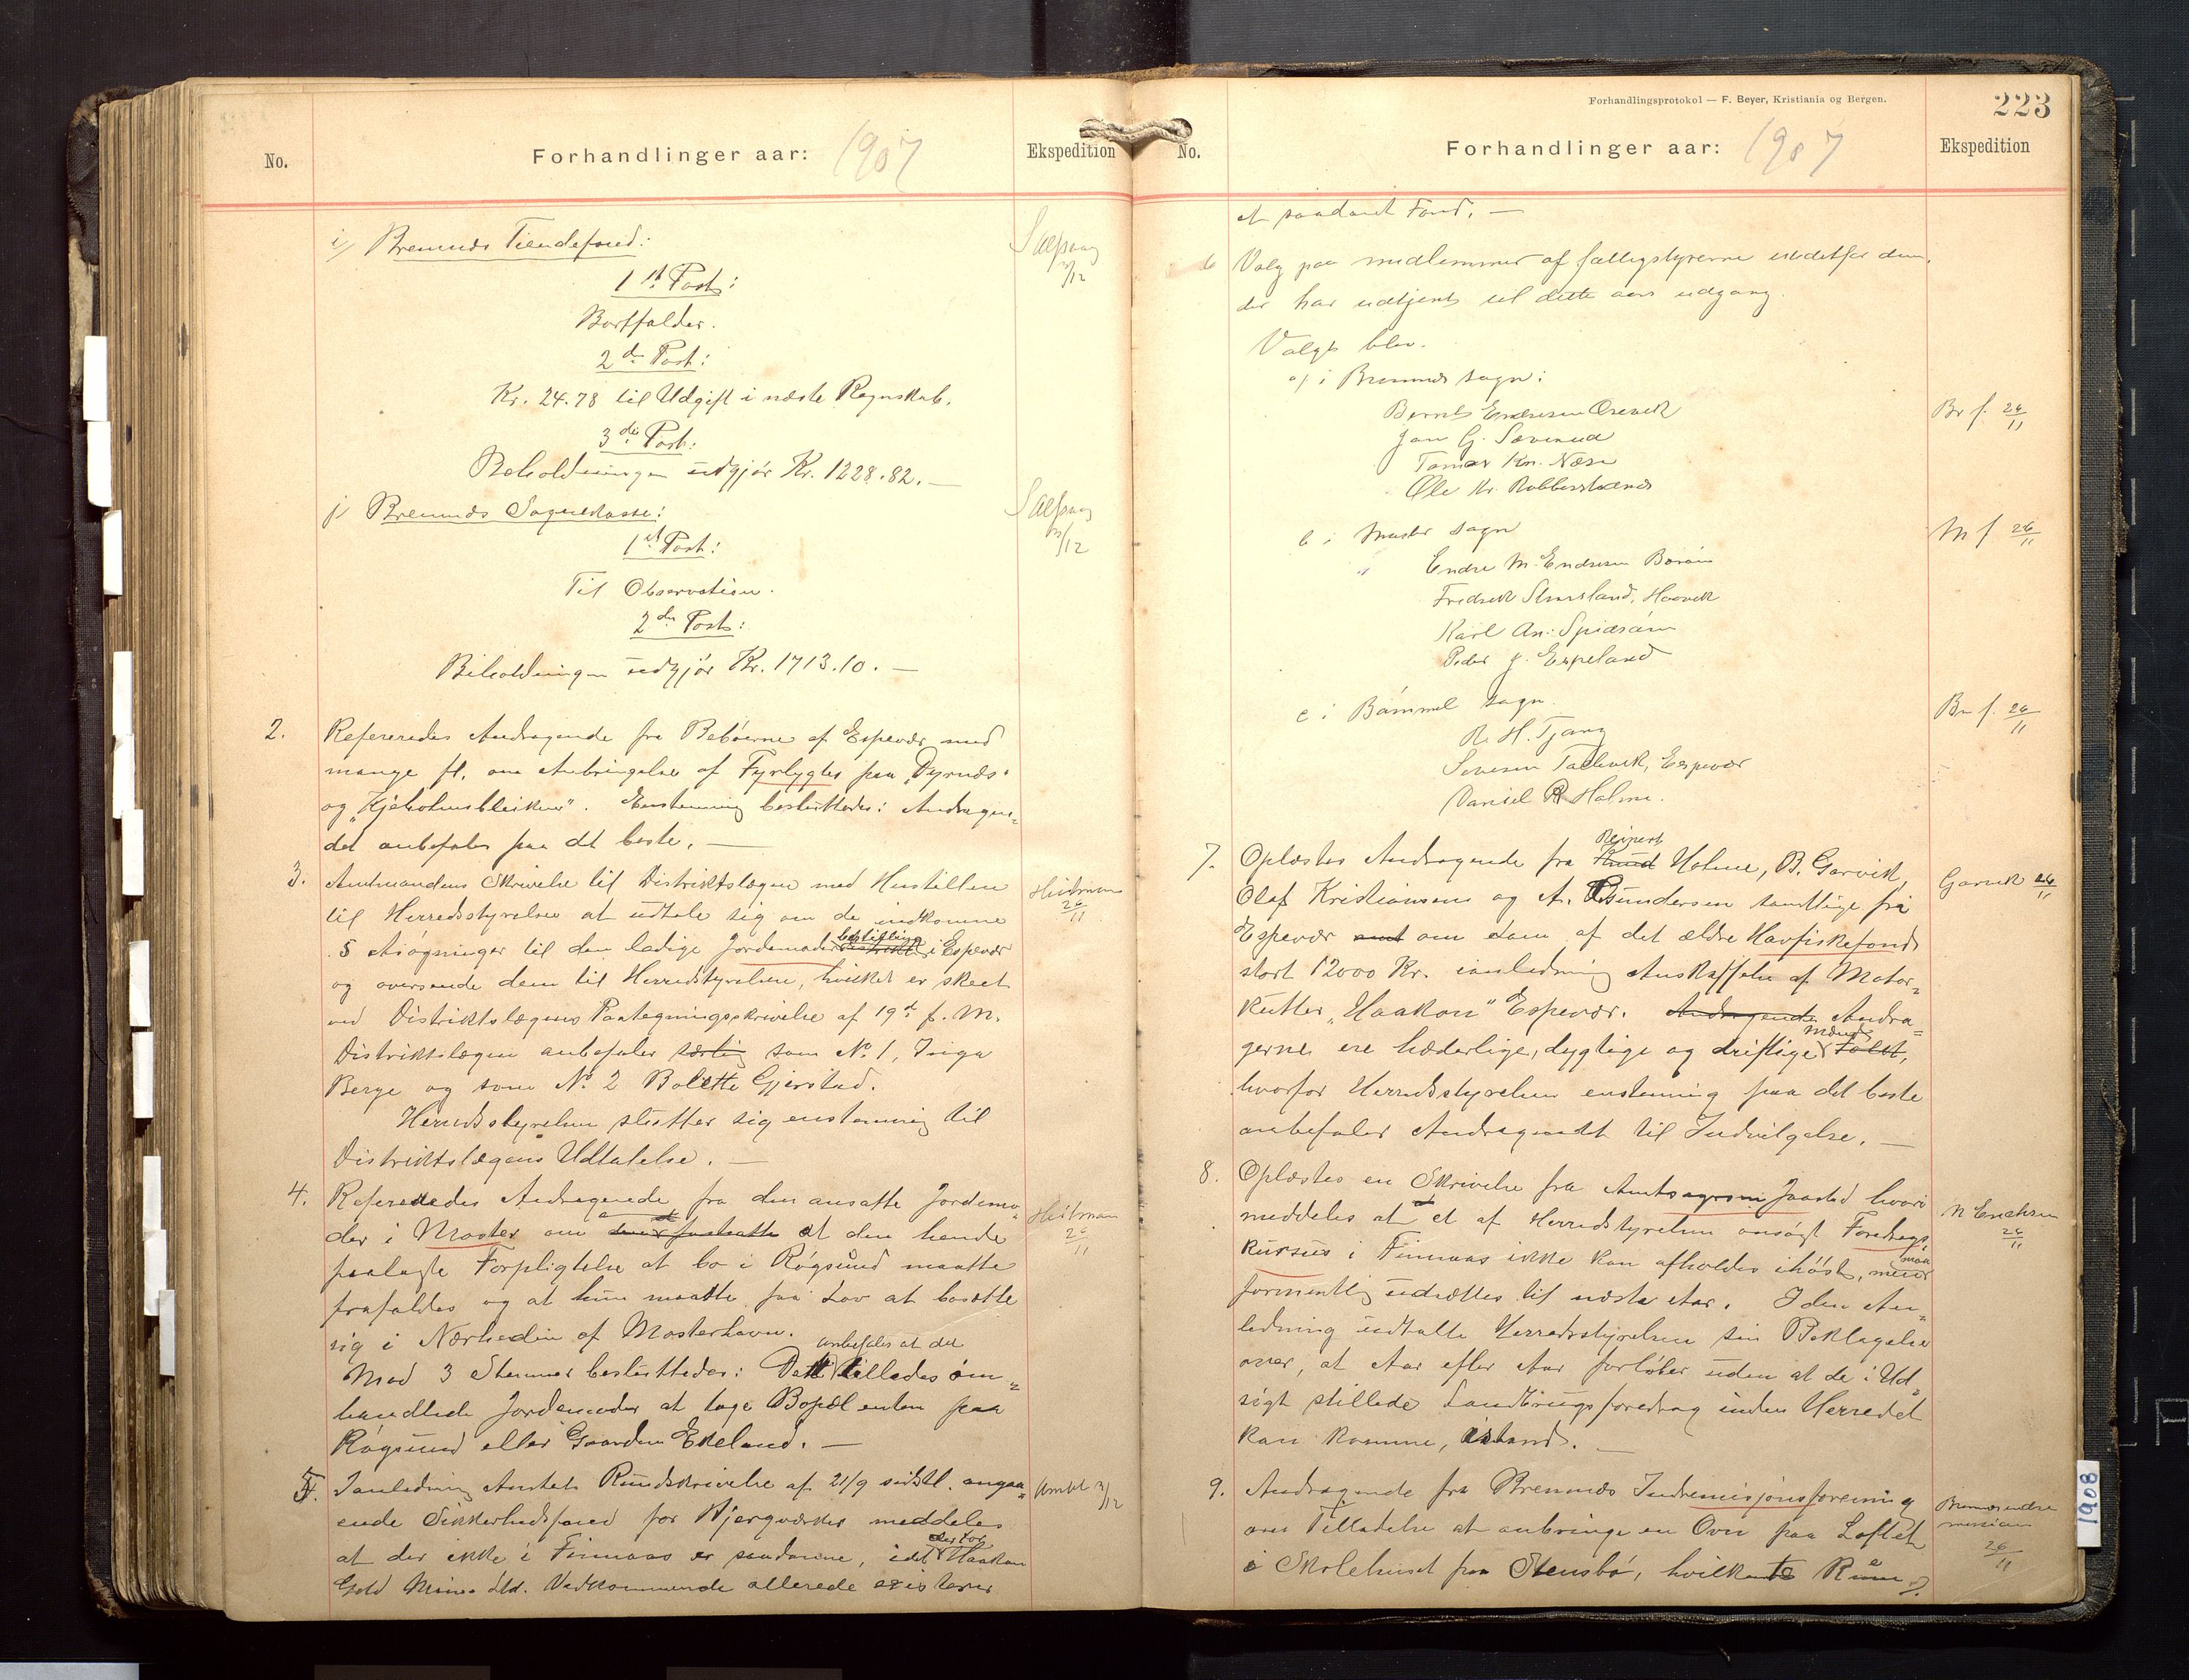 No.
Forhandlinger aar: 1907
Ekspedition
i) Bremnes Tiendefond:
1ste Post:
Bortfalder.
2den Post:
Kr. 24.78 til Udgift i næste Regnskab.
3die Post:
Beholdningen udgjør Kr. 1228.82. —
3/12
j) Bremnes Sognekasse:
1ste Post:
Til Observation.
2den Post:
Beholdningen udgjør Kr. 1713.10. —
3/12
2. Refereredes Andragende fra Beboerne af Espevær med
mange fl. om Anbringelse af Fyrlygter paa "Dyrnæs"
og "Kjeholmsbleiken". Enstemmig besluttedes: Andragen-
det anbefales paa det beste. —
3. Amtmandens Skrivelse til Distriktslægen med Henstillen
til Herredsstyrelsen at udtale sig om de indkomne
5 Ansøgninger til den ledige Jordemoderbestilling i Espevær
og oversende dem til Herredsstyrelsen, hvilket er skeet
ved Distriktslægens Paategningsskrivelse af 19de f. M.
Distriktslægen anbefaler særlig som No. 1, Inga
Berge og som No. 2 Bolette Gjerstad.
Herredsstyrelsen slutter sig enstemmig til
Distriktslægens Udtalelse. —
Heitmann 26/11
4. Refereredes Andragende fra den ansatte Jordemo-
der i Moster om at den hende
paalagte Forpligtelse at bo i Røgsund maatte
frafaldes og at hun maatte faa Lov at bosætte
sig i Nærheden af Mosterhavn.
Med 3 Stemmer besluttedes: anbefales at det tillades om-
handlede Jordemoder at tage Bopæl enten paa
Røgsund eller Gaarden Ekeland. —
Heitmann 26/11
5. I anledning Amtets Rundskrivelse af 21/9 sidstl. angaa-
ende Sikkerhedsfond for Bjergværker meddeles
at der ikke i Finnaas er saadanne, idet der for Haakon
Gold Mines Ltd. Vedkommende allerede existerer
Amtet 3/12
Forhandlingsprotokol — F. Beyer, Kristiania og Bergen.
223
No.
Forhandlinger aar: 1907
Ekspedition
et saadant Fond. —
6 Valg paa medlemmer af fælligstyrerne istedetfor dem,
der har udtjent til dette aars udgang.
Valgt blev.
a) i Bremnes sogn:
Jan G. Sæverud
Tomas Kn. Næse
Ole Kr. Rubbestadnes
Br f. 26/11
b i Moster sogn
Endre M. Endresen
Fredrik Stursland, Haavik
Karl An. Spidsøen
Peder J. Espeland
M f 26/11
c i Bømmel sogn.
R. H. Tjong
Severin Tallevik, Espevær
Daniel R Holme.
Bø f. 26/11
7. Oplæstes Andragende fra Reinert Knud Holme, B. Garvik,
Olaf Kristiansen og A. Gundersen samtlige fra
Espevær om Laan af det ældre Havfiskefond
stort 12000 Kr. i anledning Anskaffelse af Motor-
kutter "Haakon" Espevær. Andragende Andra-
gerne ere hæderlige, dygtige og driftige Mænd Folk,
hvorfor Herredsstyrelsen enstemmig paa det beste
anbefaler Andragendet til Indvilgelse. —
Garvik 26/11
8. Oplæstes en Skrivelse fra Amtsagronom Jaastad hvori
meddeles at det af Herredsstyrelsen ansøgt Foredrags-
kursus i Finnaas ikke kan afholdes ihøst, men maa
formentlig udsættes til næste Aar. I den An-
ledning udtalte Herredsstyrelsen sin Beklagelse
over, at Aar efter Aar forløber uden at de i Ud-
sigt stillede Landbrugsforedrag inden Herredet
kan komme istand. —
N Erichsen 26/11
9. Andragende fra Bremnes Indremisjonsforening
om Tilladelse at anbringe en Ovn paa Loftet
i Skolehuset paa Stensbø, hvilket
Bremnes indremission 26/11
1908